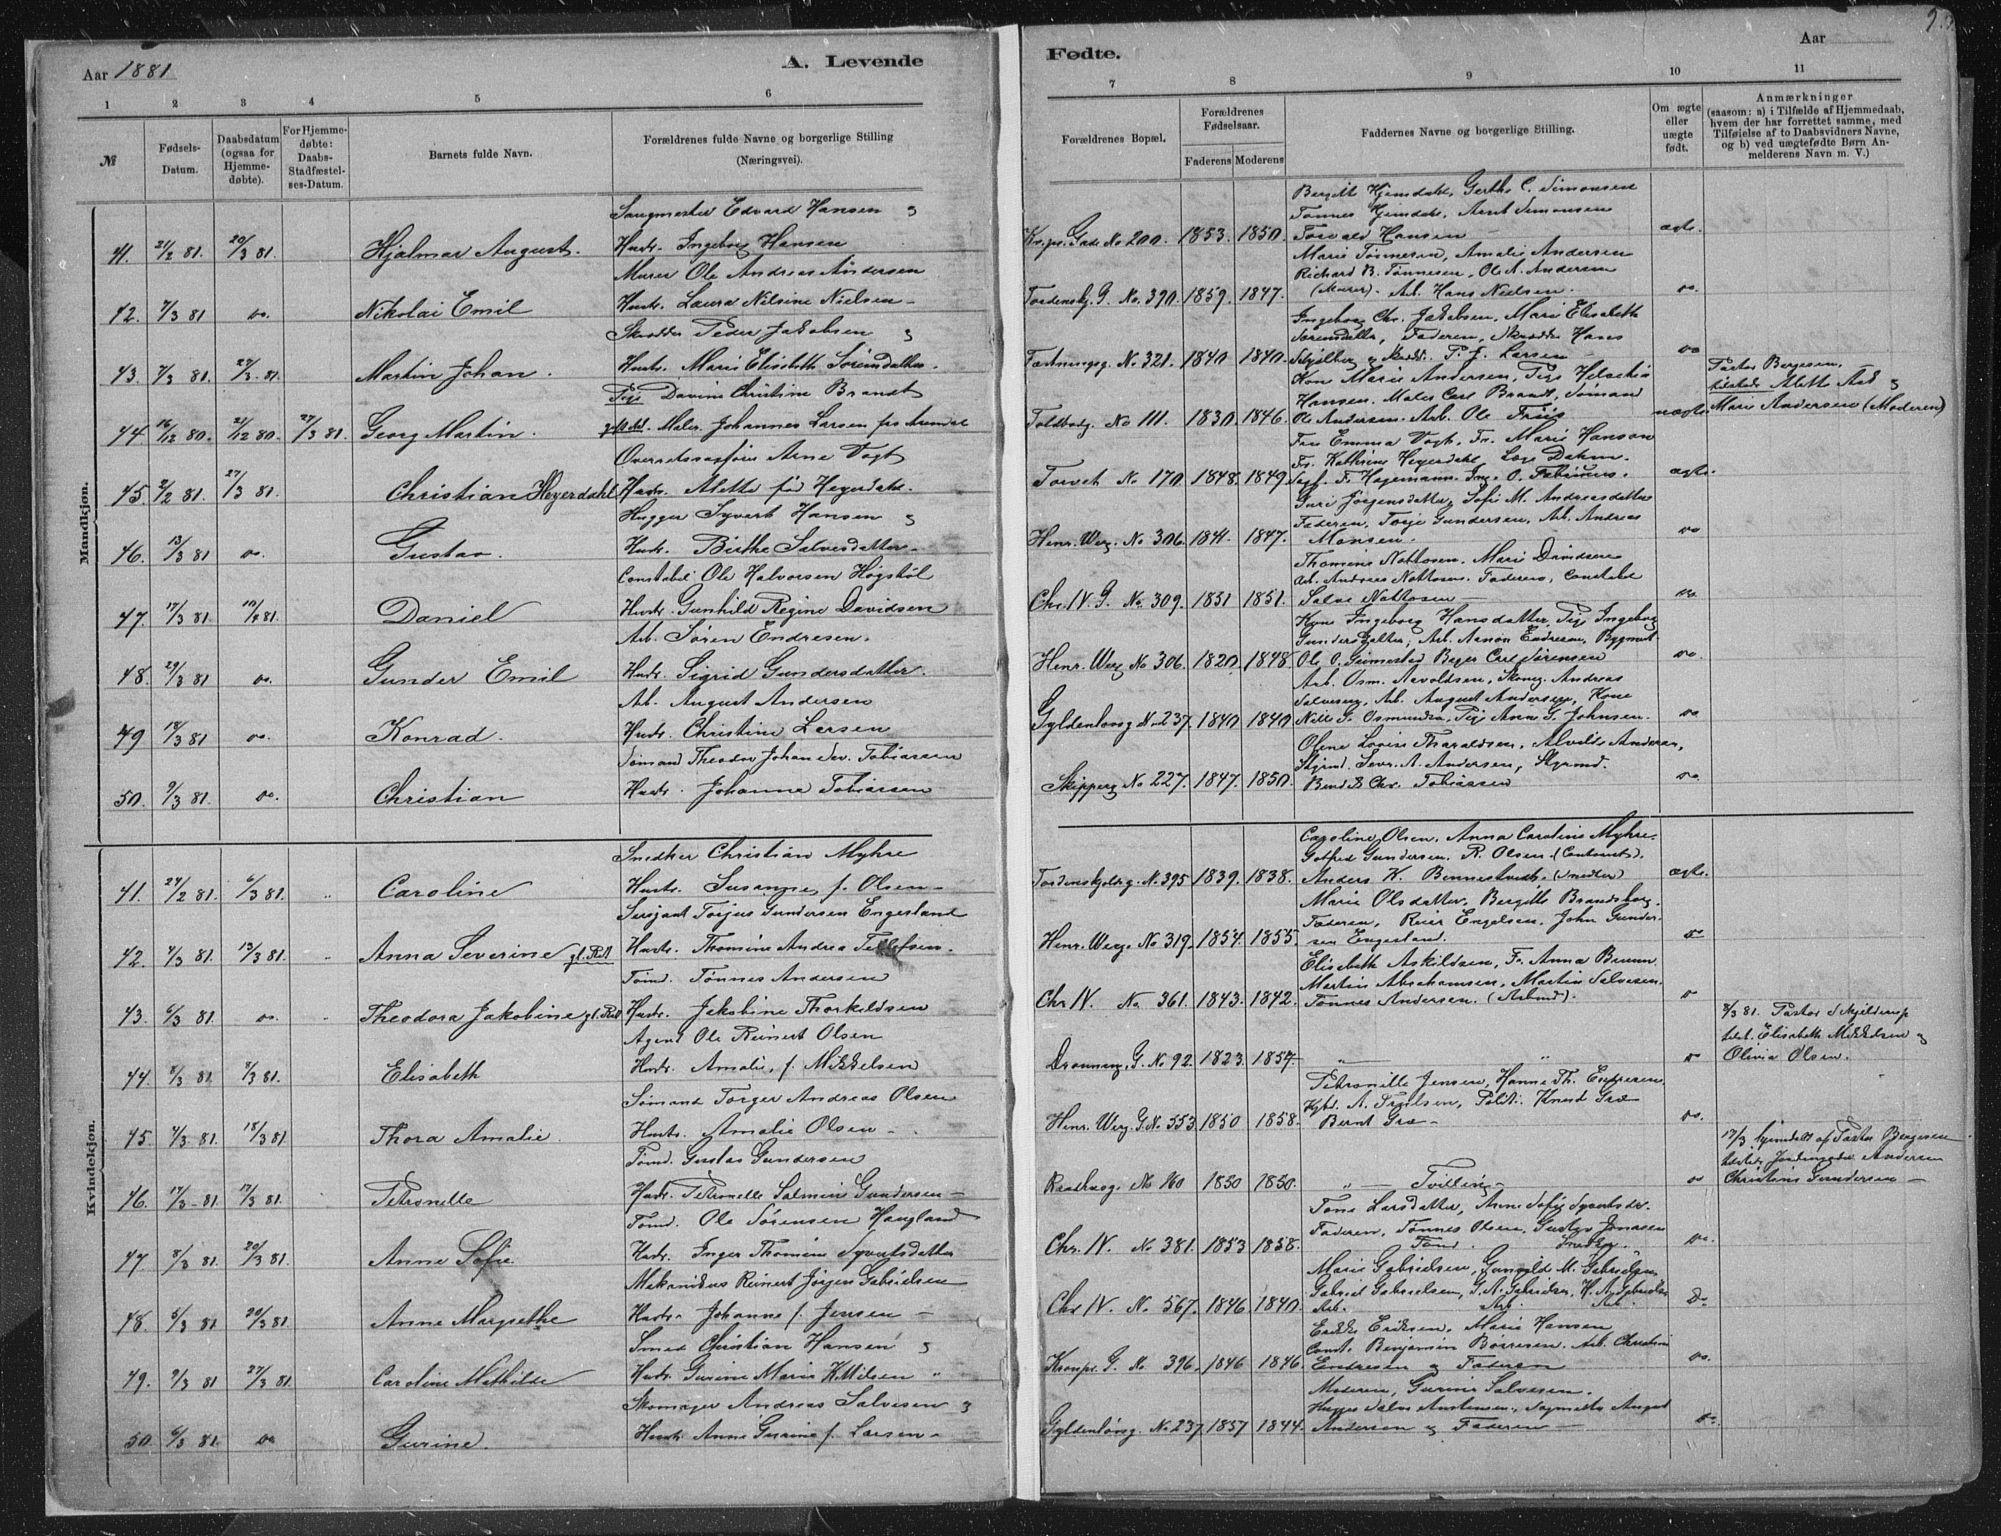 Aar 1881
A. Levende
Fødte.
Aar
23
1 2 3 4 5 6 7 8 9 10 11
№
Fødsels-Datum.
Daabsdatum (ogsaa for Hjemmedøbte).
For Hjemmedøbte: Daabs-Stadfæstelses-Datum.
Barnets fulde Navn.
Forældrenes fulde Navne og borgerlige Stilling (Næringsvei).
Forældrenes Bopæl.
Forældrenes Fødselsaar.
Faderens Moderens
Faddernes Navne og borgerlige Stilling.
Om ægte eller uægte født.
Anmærkninger
(saasom: a) i Tilfælde af Hjemmedaab, hvem der har forrettet samme, med Tilføielse af to Daabsvidners Navne, og b) ved uægtefødte Børn Anmelderens Navn m. V.)
Mandkjøn.
Edvard Hansen Bergitt Hjemdahl, Gerthe C. Simonsen
Tønnes Hjemdahl, Arnt Simonsen
41. 21/2 81. 20/3 81. Hjalmar August. Hustr. Ingeborg Hansen Kr.pr. Gade No 200. 1853. 1850. Torvald Hansen ægte.
Murer Ole Andreas Andersen Marie Tønnesen, Amalie Andersen
Richard B. Tønnesen, Ole A. Andersen
42. 7/3 81 do. Nikolai Emil Hustr. Laura Nilsine Nielsen Tordensk. G. No. 390. 1859. 1847. (Murer). Arb. Hans Nielsen. do.
Skrædder Peder Jakobsen Ingeborg Chr. Jakobsen, Marie Elisabeth
Sørensdatter, Faderen, Skrædder Hans
43. 7/3 81. 27/3 81. Martin Johan. Hustr. Marie Elisabeth Sørensdatter. Fæstningsg. No. 321. 1840 1840. P. J. Larsen do
Pige Davine Christine Brandt Kone Marie Andersen, Pige
Hansen. Maler Carl Brandt, Sømand
44. 16/12 80. 21/12 80. 27/3 81. Georg Martin. Maler Johannes Larsen fra Arendal Toldbodg. No 111. 1830. 1846. Ole Andersen. Arb. Ole Friis uægte. Pastor Bergesen. tilstede Alette Aas Marie Andersen (Moderen)
Overretssagfører Arne Vogt Fru Emma Vogt, Fr. Marie Hanson
Fr. Kathrine Heyerdahl, Læge Dahm.
45. 2/2 81. 27/3 81. Christian Heyerdahl Hustr. Alette fød Heyerdahl. Torvet No 170. 1848. 1849 F. Hagemann. Ing. O. ægte.
Hugger Syvert Hansen Guri Jørgensdatter, Sofie M. Andreasdatter
Faderen, Terje Gundersen, Arb. Andreas
46. 13/3 81 do. Gustav Hustr. Birthe Salvesdatter. Henr. Werg. No 306. 1841. 1847. Monsen. do
Constabel Ole Halvorsen Høgstøl Thomine Nottosen. Marie Davidsen
Arb. Andreas Nottosen. Faderen, Constabel
47. 17/3 81. 10/4 81. Daniel Hustr. Gunhild Regine Davidsen Chr. IV. G. No. 309. 1851 1851. Salve Nottosen do.
Arb. Søren Endresen. Kone Ingeborg Hansdatter, Pige Ingeborg
Gundersdatter, Arb. Aanon Endresen, Bygmst.
48. 29/3 81 do. Gunder Emil Hustr. Sigrid Gundersdatter. Henr. Werg No 306. 1820. 1848. Ole O. Grimestad Bager Carl Sørensen do.
Arb. August Andersen Arb. Osm. Aavoldsen, Skomg. Andreas
Salvesen, Arb. August Andersen, Kone
49 14/3 81 do. Konrad. Hustr. Christine Larsen Gyldenløvsg No 237. 1840. 1840. Nille G. Osmundsen, Pige Anne G. Johnsen. do
Sømand Theodor Johan Sev. Tobiassen Olene Lovise Tharaldsen, Alvilde Andersen,
Styrmd. Sevr. A. Andersen, Styrmd.
50. 9/3 81. do. Christian Hustr. Johanne Tobiassen Skipperg No 227. 1847. 1850. Chr. Tobiassen do.
Kvindekjøn.
Snedker Christian Myhre Caroline Olsen, Anna Caroline Myhre.
Gotfred Gundersen. R. Olsen.
41. 24/2 81. 6/3 81. Caroline Hustr. Susanne f. Olsen Tordenskjoldsg. No. 395 1839. 1838. Anders K. Bennestvedt. (Snedker) ægte.
Sersjant Torjus Gundersen Engesland Marie Olsdatter, Bergitte Brandsborg.
Faderen, Reier Engelsen. John Gundersen
42. 4/3 81. 13/3 81. Anna Severine Hustr. Thomine Andrea Tellefsen. Henr. Werg. No 319. 1854. 1855. Engesland.
Tømd. Tønnes Andersen Elisabeth Askildsen, Fr. Anna Bruun
Martin Abrahamsen, Martin Salvesen.
43. 6/3 81. do. Theodora Jakobine Hustr. Jakobine Thorkildsen Chr IV. No 361. 1843. 1842. Tønnes Andersen.
Agent Ole Reinert Olsen
44. 8/3 81. 8/3 81. Elisabeth Hustr. Amalie, f. Mikkelsen Dronning. G. No 92. 1823. 1857. 8/3 81. Pastor Skjelderup tilst. Elisabeth Mikkelsen Olivia Olsen.
Sømand Torger Andreas Olsen Petronille Jensen, Hanne Th. Endresen.
A. Trulsen, Politi. Knud Græ
45. 4/3 81. 18/3 81. Thora Amalie. Hustr. Amalie Olsen Henr. Werg. G. No 353 1850 1858. Bernt Græ do.
Tømd. Gustav Gundersen
46. 17/3 81 17/3 81. Petronelle Hustr. Petronelle Salmine Gundersen Raadhusg. No 160 1850 1850. Tvilling do 17/3 hjemdøbt af Pastor Bergesen tilstede Jordemoder Andersen Christine Gundersen
Tømd. Ole Sørensen Haugland Tone Larsdatter, Anne Sofie Syvertsdr.
Faderen, Tønnes Olsen, Gustav Jonassen
47. 8/3 81 20/3 81. Anne Sofie Hustr. Inger Thomine Syvertsdatter Chr. IV. No 381. 1853 1858. Tømd. Snedker. do.
Mekanikus Reinert Jørgen Gabrielsen Marie Gabrielsen, Gunvalde M. Gabrielsen
Gabriel Gabrielsen, G. A. Gabrielsen, H. A. Gabrielsen
48. 5/3 81. 20/3 81. Anne Margrethe Hustr. Johanne f. Jensen Chr IV. No 567. 1846 1840. Arb. Arb. Arb. Do
Smed Christian Hansen Erikke Eriksen. Marie Hansen
Const. Benjamin Børresen. Arb. Christian
49. 9/3 81 27/3 81. Caroline Mathilde Hustr. Gurine Marie K. Nilsen Kronpr. G. No 396. 1846 1846. Endresen og Faderen do.
Skomager Andreas Salvesen Moderen, Gurine Salvesen.
Hugger Salve Austensen, August
50. 6/3 81 do Gurine. Hustr. Anne Gurine f. Larsen Gyldenløvsg. No. 237. 1857 1844. Andersen og Faderen do.